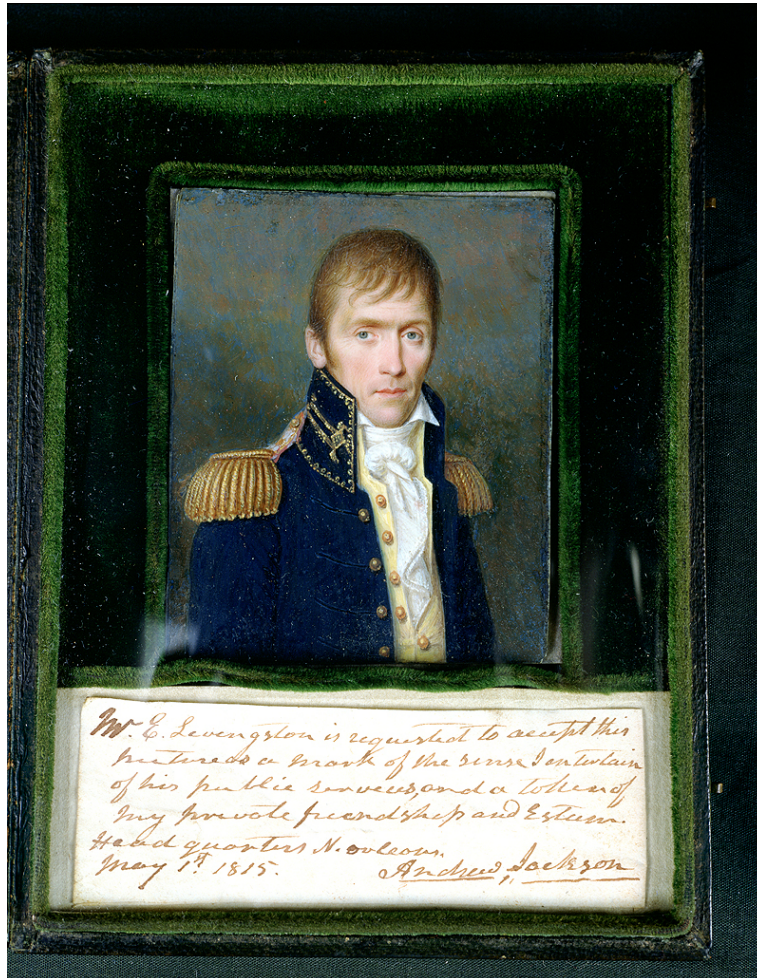 Mr. E. Levingston is requested to accept this
picture as a mark of the sense I entertain
of his public services, and a token of
my private friendship and Esteem.
Head quarters N. orleans.
May 1st 1815. Andrew Jackson